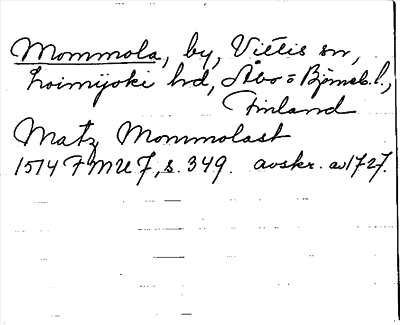 Mommola, by, Viečis sn,
Loimijoki hrd, Åbo = Björneb. l.,
Finland
Matz Mommolast
1514 FMU 7, s. 349. avskr. av 1727.